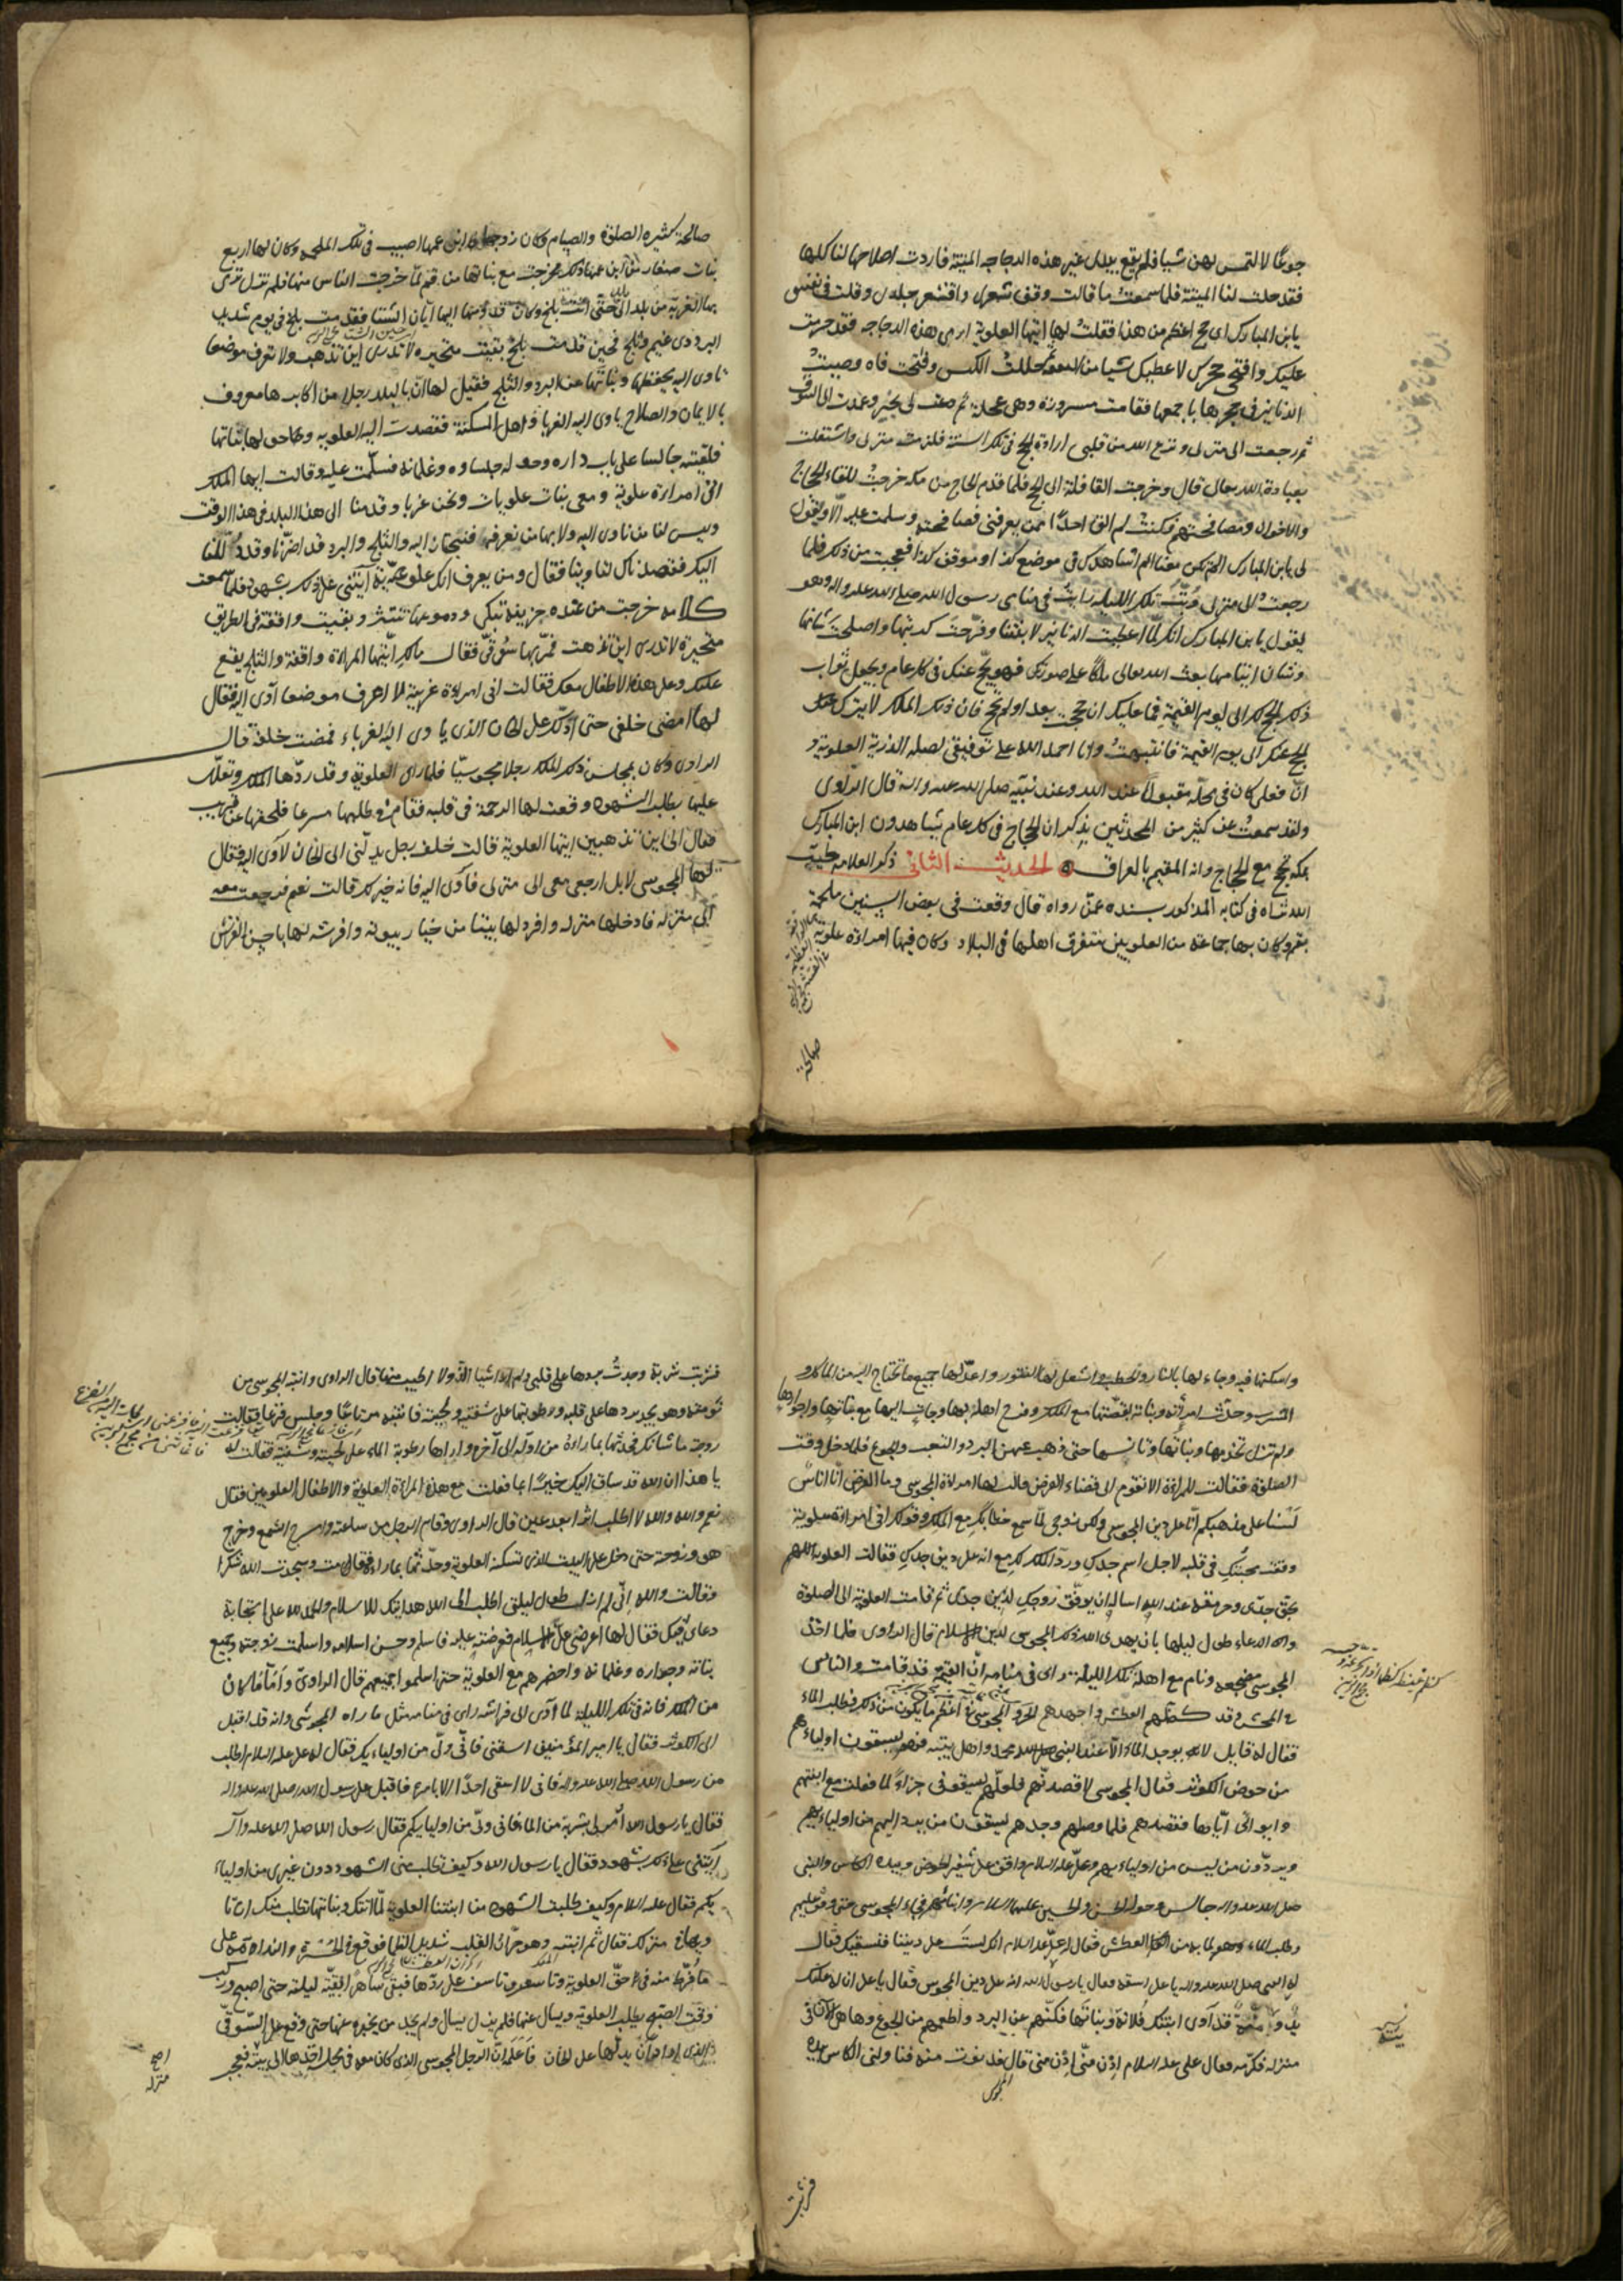 جوعًا لا لتمس لهن شيا فلم يقع بيدي غير هذه الدجاجه الميتة فاردت اصلاحها لنا كلها
فقد حلت لنا الميتة فلما سمعت ما قالت وقف شعري واقشعر جلدي وقلت في نفسي
يابن المبارك اى حج اعظم من هذا فقلت لها ايتها العلوية ارمى هذه الدجاجه فقد حرمت
عليك وافتحى حجرك لاعطيك شيا من النفقه فحللت الكيس وفتحت فاه وصببت
الدنانير فى حجرها باجمعها فقامت مسرورة وهى عجلة ثم دعت لى بخير وعدت الى السوق
ثم رجعت الى منزلى ونزع الله من قلبى ارادة الحج فى تلك السنة فلزمت منزلى واشتغلت
بعبادة الله تعالى قال وخرجت القافلة الى الحج فلما قدم الحاج من مكه خرجت للقاء الحجاج
والاخوان ومصافحتهم فكنت لم الق احدًا ممن يعرفنى فصافحته وسلمت عليه الا ويقول
لى يابن المبارك الم تكن معنا الم اشاهدك فى موضع كذا وموقف كذا فعجبت من ذلك فلما
رجعت الى منزلى وبتّ تلك الليلة رايت فى منامى رسول الله صلى الله عليه واله وهو
يقول يا بن المبارك انك لما اعطيت الدنانير لابنتنا وفرّجت كربتها واصلحت شانها
وشان ايتامها بعث الله تعالى ملكًا على صورتك فهو يحج عنك فى كل عام ويجعل ثواب
ذلك الحج لك الى يوم القيمة فما عليك ان حججت بعد او لم تحج فان ذلك الملك لا يترك
الحج عنك الى يوم القيمة فانتبهت وانا احمد الله على توفيقى لصله الذرية العلوية و
انّ فعلى كان فى محلّه مقبولًا عند الله وعند نبيّه صلى الله عليه واله قال الراوى
ولقد سمعت عن كثير من المحدثين يذكر ان الحجاج فى كل عام يشاهدون ابن المبارك
بمكه يحج مع الحجاج وانه المقيم بالعراق الحديث الثانى ذكر العلامه طيّب
الله ثراه فى كتابه المذكور بسنده عمّن رواه قال وقعت فى بعض السنين ملحمة
بقم وكان بها جماعة من العلويين فتفرق اهلها فى البلاد وكان فيها امراة علوية
صالحة
صالحة كثيره الصلوة والصيام وكان زوجها ابن عمها اصيب فى تلك الملحمه وكان لها اربع
بنات صغار من ابن عمها ذلك فخرجت مع بناتها من قم لمّا خرجت الناس منها فلم تزل ترمى
بها الغربة من بلد الى بلد حتى اتت بلخ وكان قدومها اليها ابّان الشتا فقدمت بلخ فى يوم شديد
البرد ذى غيم وثلج فحين قدمت بلخ بقيت متحيره لا تدرى اين تذهب ولا تعرف موضعا
تاوى اليه يحفظها وبناتها عن البرد والثلج فقيل لها ان بالبلد رجلا من اكابرها معروف
بالايمان والصلاح ياوى اليه الغربا واهل المسكنة فقصدت اليه العلويه وحولها بناتها
فلقيته جالسا على باب داره وحوله جلساوه وغلمانه فسلّمت عليه وقالت ايها الملك
انى امراة علوية ومعى بنات علويات ونحن غربا وقدمنا الى هذا البلد فى هذا الوقت
وليس لنا من ناوى اليه ولا بها من نعرفه فننحاز اليه والثلج والبرد قد اضرّنا وقد دُللنا
اليك فقصدناك لتاوينا فقال ومن يعرف انك علويه ايتنى على ذلك بشهود فلما سمعت
كلامه خرجت من عنده حزينة تبكى ودموعها تنتثر وبقيت واقفة فى الطريق
متحيرة لا تدرى اين تذهب فمرّ بها سُوقىّ فقال مالك ايتها المراة واقفة والثلج يقع
عليك وعلى هذه الاطفال معك فقالت انى امراة غريبة لا اعرف موضعا آوى اليه فقال
لها امضى خلفى حتى ادلّك على الخان الذى ياوى اليه الغرباء فمضت خلفه قال
الراوى وكان بمجلس ذلك الملك رجلا مجوسيّا فلما راى العلوية وقد ردّها الملك وتعلّل
عليها بطلب الشهود وقعت لها الرحمة فى قلبه فقام فى طلبها مسرعا فلحقها عن قريب
فقال الى اين تذهبين ايتها العلوية قالت خلف رجل يدلّنى الى الخان لآوى اليه فقال
لها المجوسى لا بل ارجعى معى الى منزلى فآوى اليه فانه خير لك قالت نعم فرجعت معه
الى منزله فادخلها منزله وافرد لها بيتا من خيار بيوته وافرشه لها باحسن الفرش
واسكنها فيه وجاء لها بالنار والحطب واشعل لها التنور واعدّ لها جميع ما تحتاج اليه من الماكل و
المشرب وحدّث امراته وبناته بقصّتها مع الملك وفرح اهله بها وجاءت اليها مع بناتها وجوارها
ولم تزل تخدمها وبناتها وتانسها حتى ذهب عنهن البرد والتعب والجوع فلما دخل وقت
الصلوة فقالت للمراة الا تقوم الى قضاء الفرض قالت لها امراة المجوسى وما الفرض انّا اناسٌ
لَسْنا على مذهبكم انّا على دين المجوسى ولكن زوجى لمّا سمع خطابك مع الملك وقولك انى امراة علوية
وقعت محبتك فى قلبه لاجل اسم جدك وردّ الملك لك مع انه على دين جدك فقالت العلويه اللهم
بحق جدّى وحرمته عند الله اساله ان يوفّق زوجك لدين جدى ثم قامت العلوية الى الصلوة
والدعاء طول ليلها بان يهدى الله ذلك المجوسى لدين الاسلام قال الراوى فلما اخذ
المجوسى مضجعه ونام مع اهله تلك الليلة راى فى منامه انّ القيمة قد قامت والناس
فى المحشر وقد كضّهم العطش واجهدهم الحر والمجوسى فى اعظم ما يكون من ذلك فطلب الماء
فقال له قايل لا يوجد الماء الّا عند النبى محمد واهل بيته فهم يسقون اولياءهم
من حوض الكوثر فقال المجوسى لاقصدنّهم فلعلّهم يسقونى جزاءً لما فعلت مع ابنتهم
وايوائى ايّاها فقصدهم فلما وصلهم وجدهم يسقون من يرد اليهم من اوليائهم
ويردّون من ليس من اوليائهم وعلىّ عليه السلام واقف على شفير الحوض وبيده الكاس والنبى
صلى الله عليه واله جالس وحوله الحسن والحسين عليهما السلام وابناؤهم فجاء المجوسى حتى وقف عليهم
وطلب الماء وهو لما به من العطش فقال له علىّ عليه السلام انك لست على ديننا فنسقيك فقال
له النبى صلى الله عليه واله يا على اسقه فقال يا رسول الله انه على دين المجوس فقال يا على ان له عليك
يدًا قد آوى ابنتك فلانة وبناتها فكنّهم عن البرد واطعمهم من الجوع وها هى الآن فى
منزله مكرّمه فقال على عليه السلام اِدْن منّى اِدْن منى قال فدنوت منه فناولنى الكاس بيده
فشربت
فشربت شربة وجدتُ بردها على قلبى ولم ار شيا الذّ ولا اطيب منها قال الراوى وانتبه المجوسى من
نومته وهو يجد بردها على قلبه ورطوبتها على شفتيه ولحيته فانتبه مرتاعًا وجلس فزعا فقالت
زوجته ما شانك فحدثها بما راه من اوله الى آخره واراها رطوبة الماء على لحيته وشفتيه فقالت له
يا هذا ان الله قد ساق اليك خيرًا بما فعلت مع هذه المراة العلوية والاطفال العلويين فقال
نعم والله لا اطلب اثرا بعد عين قال الراوى وقام الرجل من ساعته واسرج الشمع وخرج
هو وزوجته حتى دخل على البيت الذى تسكنه العلوية وحدّثها بما راه فقامت وسجدت لله شكرا
وقالت والله انّى لم ازل طول ليلتى اطلب الى الله هدايتك للاسلام والحمد لله على استجابة
دعائى فيك فقال لها اعرضى علىّ الاسلام فعرضته عليه فاسلم وحسن اسلامه واسلمت زوجته وجميع
بناته وجواره وغلمانه واحضرهم مع العلوية حتى اسلموا جميعهم قال الراوى وامّا ما كان
من الملك فانه فى تلك الليلة لما آوى الى فراشه راى فى منامه مثل ما راه المجوسى وانه قد اقبل
الى الكوثر فقال يا امير المؤمنين اسقنى فانّى ولىّ من اوليائك فقال له على عليه السلام اطلب
من رسول الله صلى الله عليه واله فانى لا اسقى احدًا الا بامره فاقبل على رسول الله صلى الله عليه واله
فقال يا رسول الله اُمر لى بشربة من الماء فانى ولىّ من اوليائكم فقال رسول الله صلى الله عليه وآله
ايتنى على ذلك بشهود فقال يا رسول الله وكيف تطلب منى الشهود دون غيرى من اوليا
ئكم فقال عليه السلام وكيف طلبت الشهود من ابنتنا العلوية لمّا اتتك وبناتها تطلب منك ان تا
ويها فى منزلك فقال ثم انتبه وهو حرّان القلب شديد الظما فوقع فى الحسرة والندامه على
ما فرّط منه فى حق العلوية وتاسف على ردّها فبقى ساهرًا بقيّة ليلته حتى اصبح وركب
وقت الصبح يطلب العلوية ويسال عنها فلم يزل يسال ولم يجد من يخبره عنها حتى وقع على السّوقىّ
الذى اراد ان يدلّها على الخان فاعلمه ان الرجل المجوسى الذى كان معه فى مجلسه اخذها الى بيته فعجب